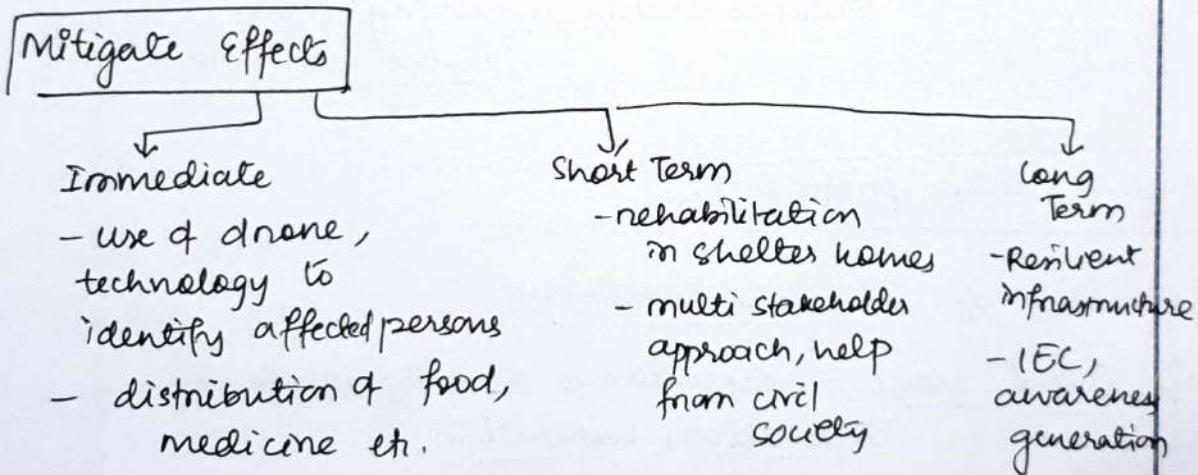 Mitigate Effects
Immediate
- use of drone,
technology to
identify affected persons
- distribution of food,
medicine etc.
Short Term
- rehabilitation
in shelter homes
- multi stakeholder
approach, help
from civil
society
Long
Term
- Resilient
infrastructure
- IEC,
awareness
generation